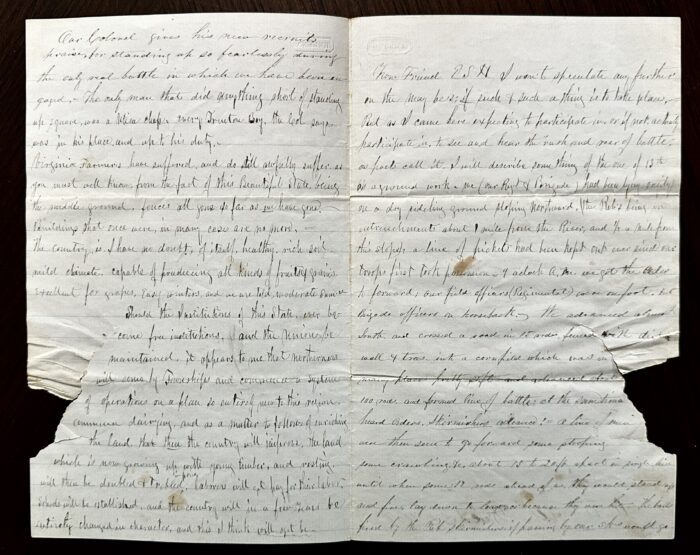 Our Colonel gives his new recruits
praise, for standing up so fearlessly during
the only real battle in which we have been en
gaged. The only man that did anything short of standing
up square, was a chap every Boy, the Col. says
was in his place, and up to his duty.
Virginia Farmers have suffered, and do still awfully suffer as
you must well know, from the fact of this Beautiful State, being
the middle ground, fences all gone so far as we have gone
buildings that once were, in many cases are no more.
The country is, I have no doubt, of itself, healthy, rich soil
mild climate, capable of producing all kinds of fruits, grains
excellent for grapes, Easy winters, and we are told moderate
Should the Institutions of this State, ever be
come free institutions, and the Union be
maintained, it appears to me that northerners
will come by Townships and commence a system
of operations on a plan so entirely new to this region
common dairying, and as a matter to follow, of enriching
the Land, that then the country will improve, the land
which is now growing up with young timber, and resting
will then be doubled & trebled, Laborers will get pay for their labor,
Schools will be established, and the country will in a few years be
entirely changed in character, and this I think will yet be
Now Friend E S H I won't speculate any further
on the may be's, if such & such a thing is to take place,
But as I came here expecting to participate in, or if not actively
participate in, to see and hear the rush and roar of battle,
as poets call it, I will describe something of the one of 13th
as a ground work - we (our Regt & Brigade) had been lying
on a dry sideling ground sloping northward, (the Rebs being in
entrenchments about 1 mile from the River, and ½ a mile from
this slope, a line of pickets had been kept out ever since our
troops first took possession. 4 o'clock we got the order
to forward; our field officers (Regimental) were on foot, but
Brigade officers on horseback. We advanced almost
South and crossed a road
wall & trees, into a cornfield which was in
many places pretty soft and advanced about
100 rods and formed line of battle, at the same time
heard orders, Skirmishers advance! a line of men
were then seen to go forward some stooping
some crawling, &c about 15 to 20 ft apart in single
until when some ahead of us, they would stand up
and fire, lay down to
fired by the Reb skirmishers passing by our would go